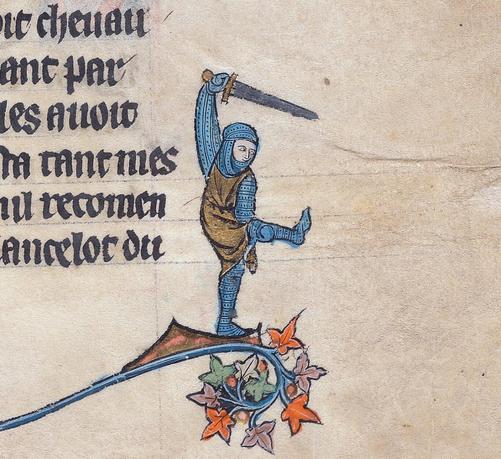 oit cheuau
ant par
les auoit
sta tant mes
nul recomen
ancelot du